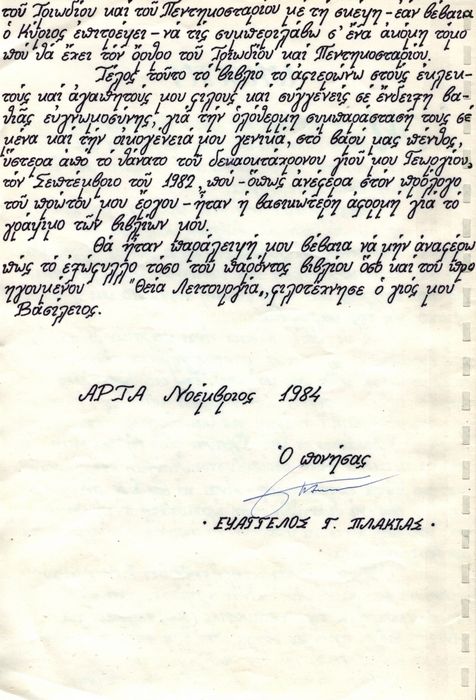 τοῦ Τριωδίου καί τοῦ Πεντηκοσταρίου με τή σκέψη-ἐάν βέβαια
ὁ Κύριος ἐπιτρέψει-νά τίς συμπεριλάβω σ' ἕνα ἀκόμη τόμο
πού θά ἔχει τόν ὄρθρο τοῦ Τριωδίου καί Πεντηκοσταρίου.
Τέλος τοῦτο τό βιβλίο τό ἀφιερώνω στούς ἐκλεκ-
τούς καί ἀγαπητούς μου φίλους καί συγγενεῖς σέ ἔνδειξη βα-
θιᾶς εὐγνωμοσύνης, γιά τήν ὁλόθερμη συμπαράστασή τους σε
μένα καί τήν οἰκογένειά μου γενικά, στό βαρύ μας πένθος,
ὕστερα ἀπό τό θάνατο τοῦ δεκαοκτάχρονου γιοῦ μου Γεωργίου,
τόν Σεπτέμβριο τοῦ 1982, πού-ὅπως ἀνέφερα στόν πρόλογο
τοῦ πρώτου μου ἔργου-ἦταν ἡ βασικώτερη ἀφορμή γιά τό
γράψιμο τῶν βιβλίων μου.
Θά ἦταν παράλειψή μου βέβαια νά μήν ἀναφέρω
πώς τό ἐξώφυλλο τόσο τοῦ παρόντος βιβλίου ὅσο καί τοῦ προ
ηγουμένου "Θεία Λειτουργία,, φιλοτέχνησε ὁ γιός μου
Βασίλειος.
ΑΡΤΑ Νοέμβριος 1984
Ὁ πονήσας
· ΕΥΑΓΓΕΛΟΣ Γ. ΠΛΑΚΙΑΣ ·